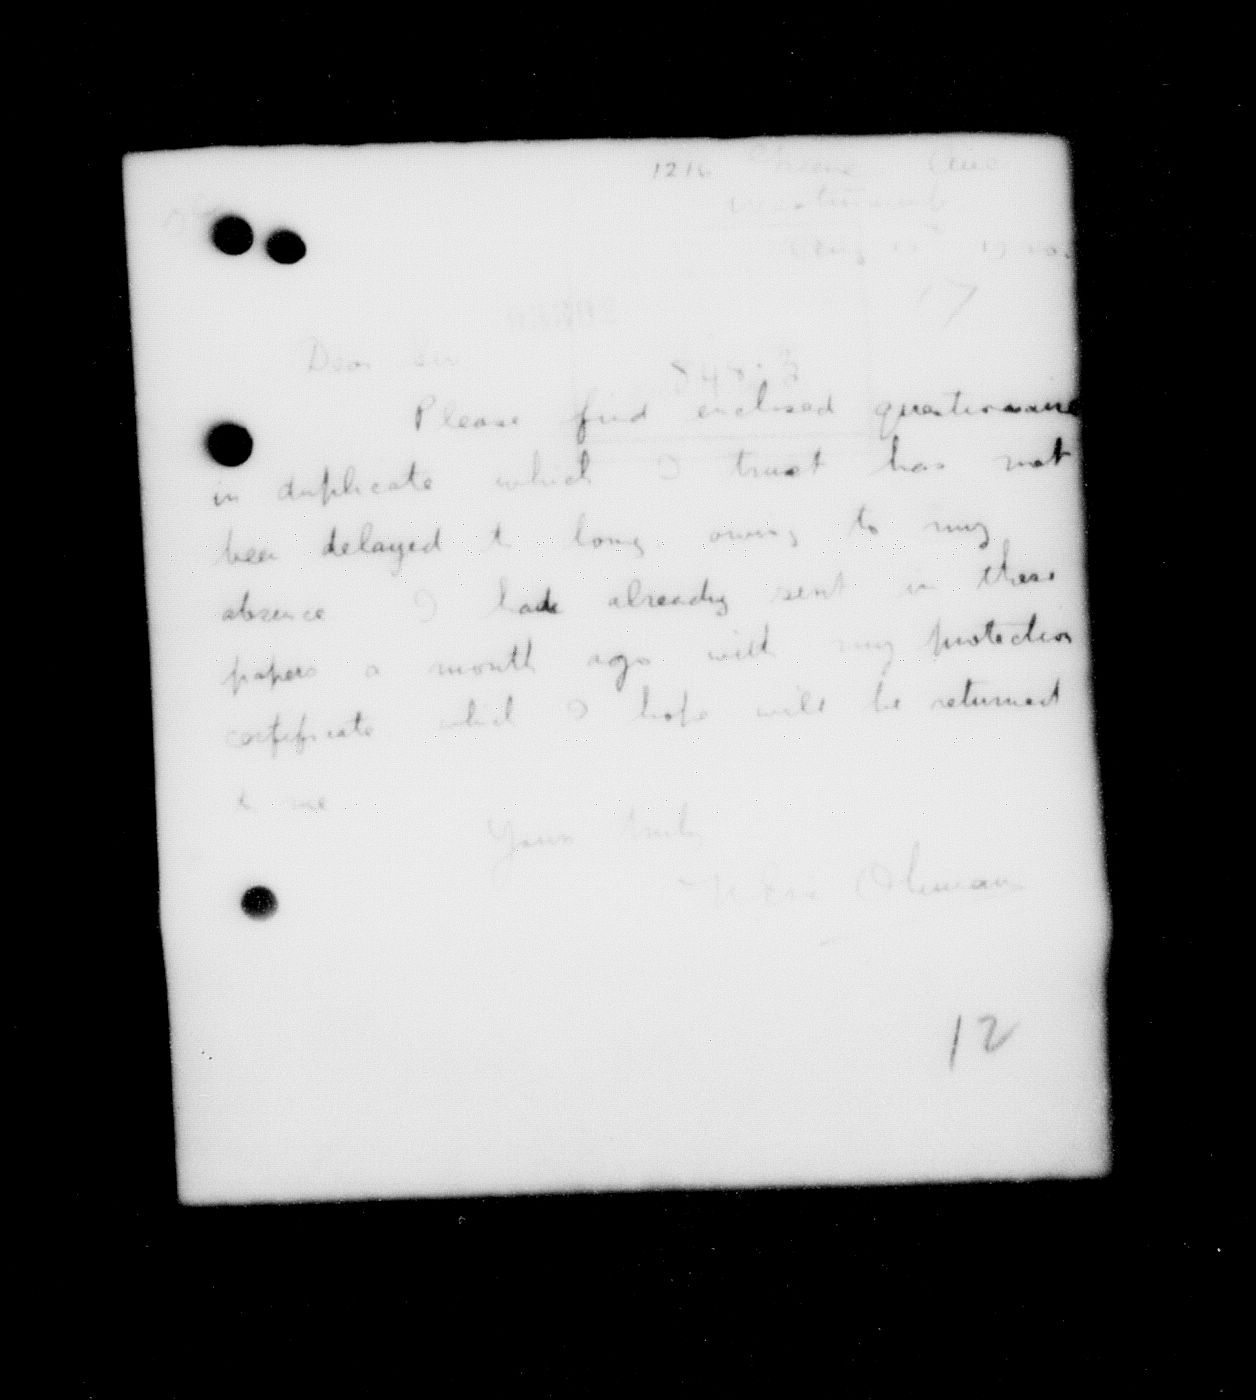 1216
Aug 19
17
Dear Sir
8483
Please find enclosed questionnaire
in duplicate which I trust has not
been delayed to long owing to my
absence I had already sent in these
papers a month ago with my protection
certificate which I hope will be returned
to me
Yours truly
12